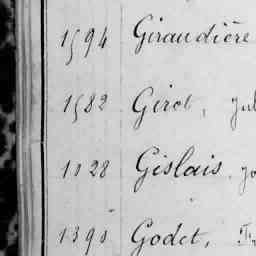 1594 Giraudière
1582 Girot, Jul
1028 Gislais, Jo
1390 Godet, Fr